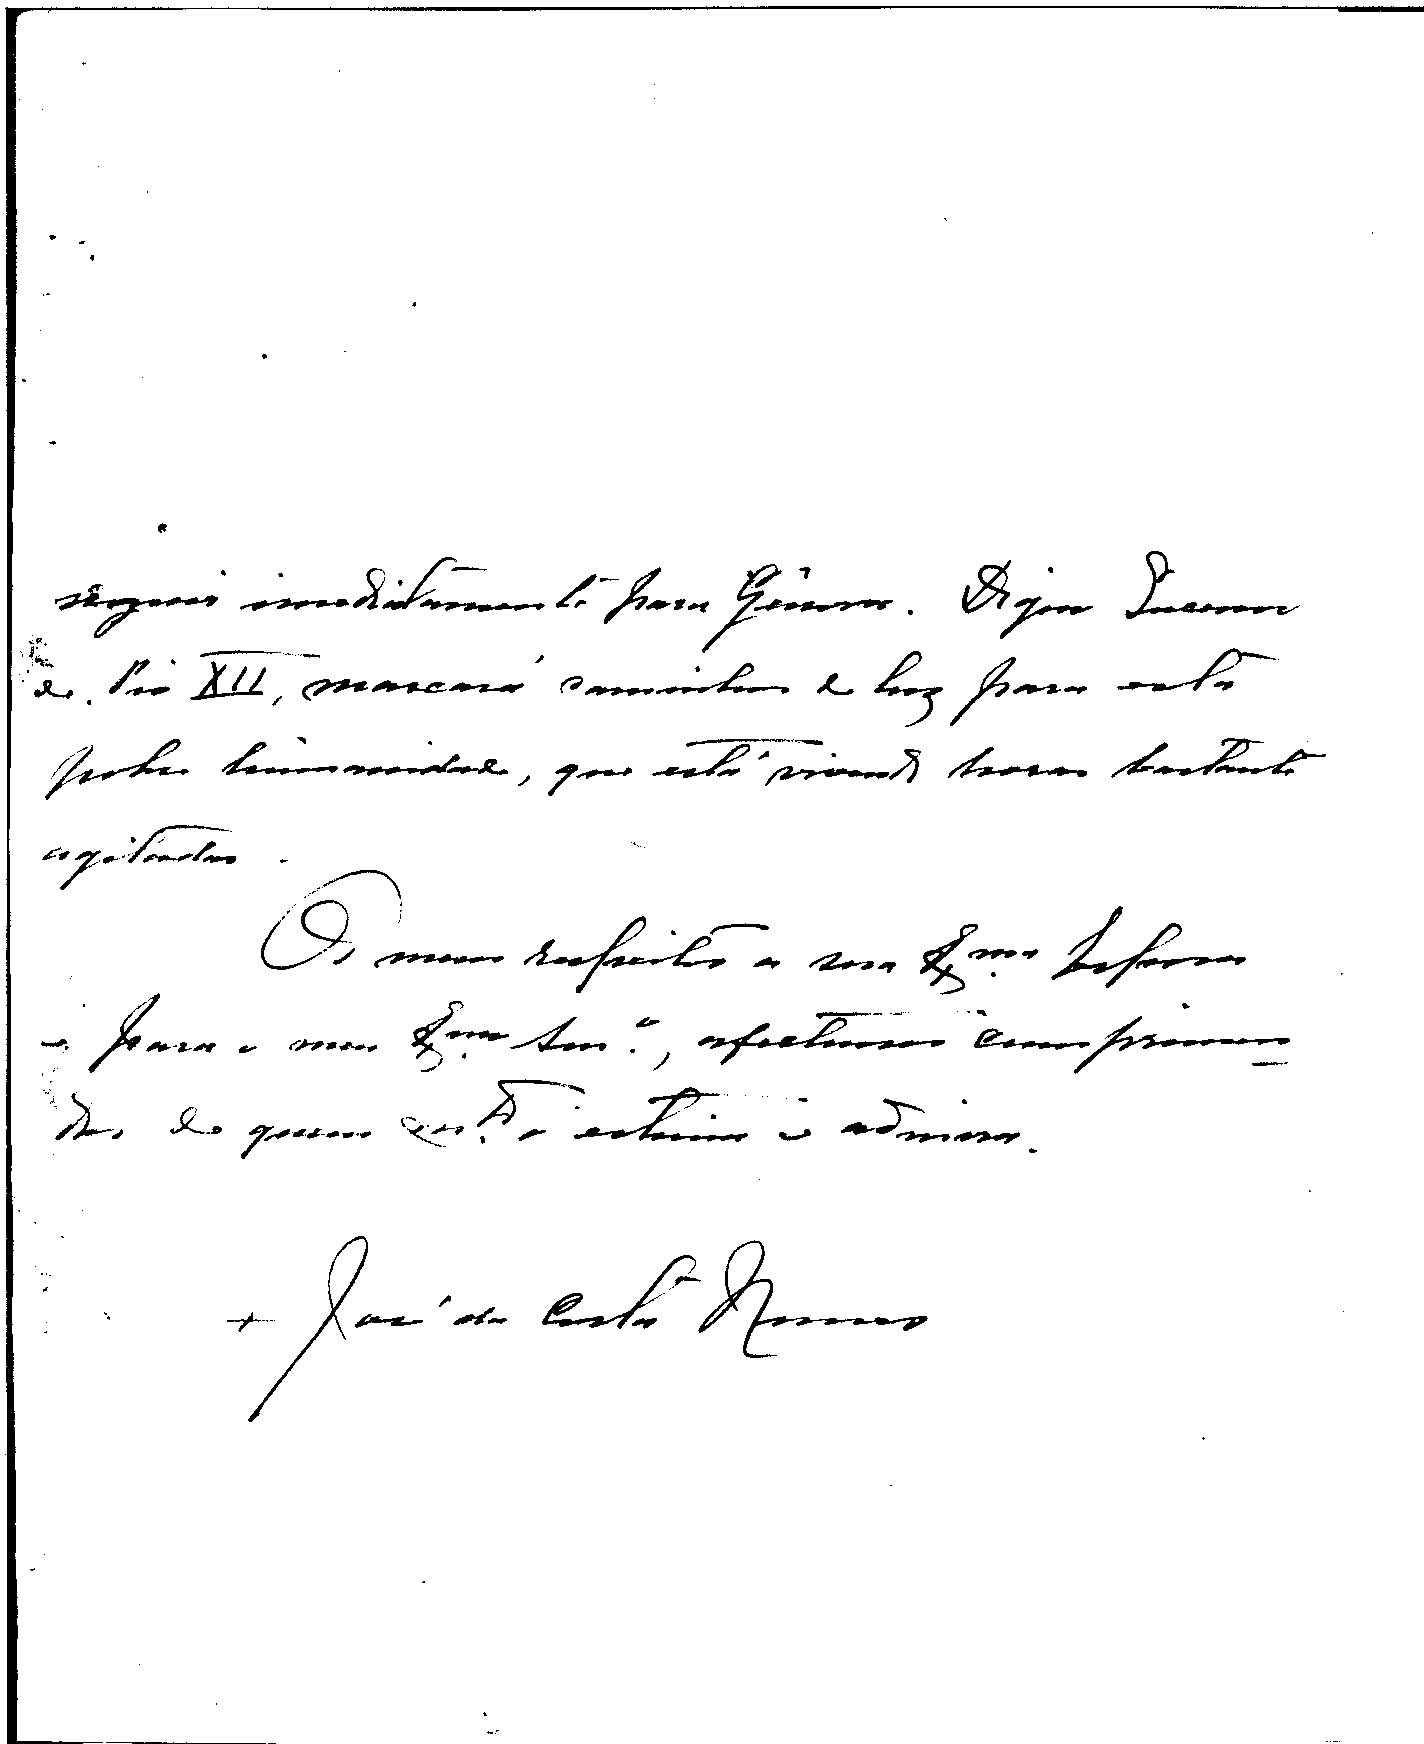 seguir imediatamente para Génova. Digno Sucessor
de Pio XII, marcará caminhos de luz para esta
pobre humanidade, que está vivendo horas bastante
agitadas.
Os meus respeitos a sua Exma Esposa
e para o meu Exmo Amº, afectuosos cumprimen
tos de quem mto o estima e admira.
+ José da Costa Nunes